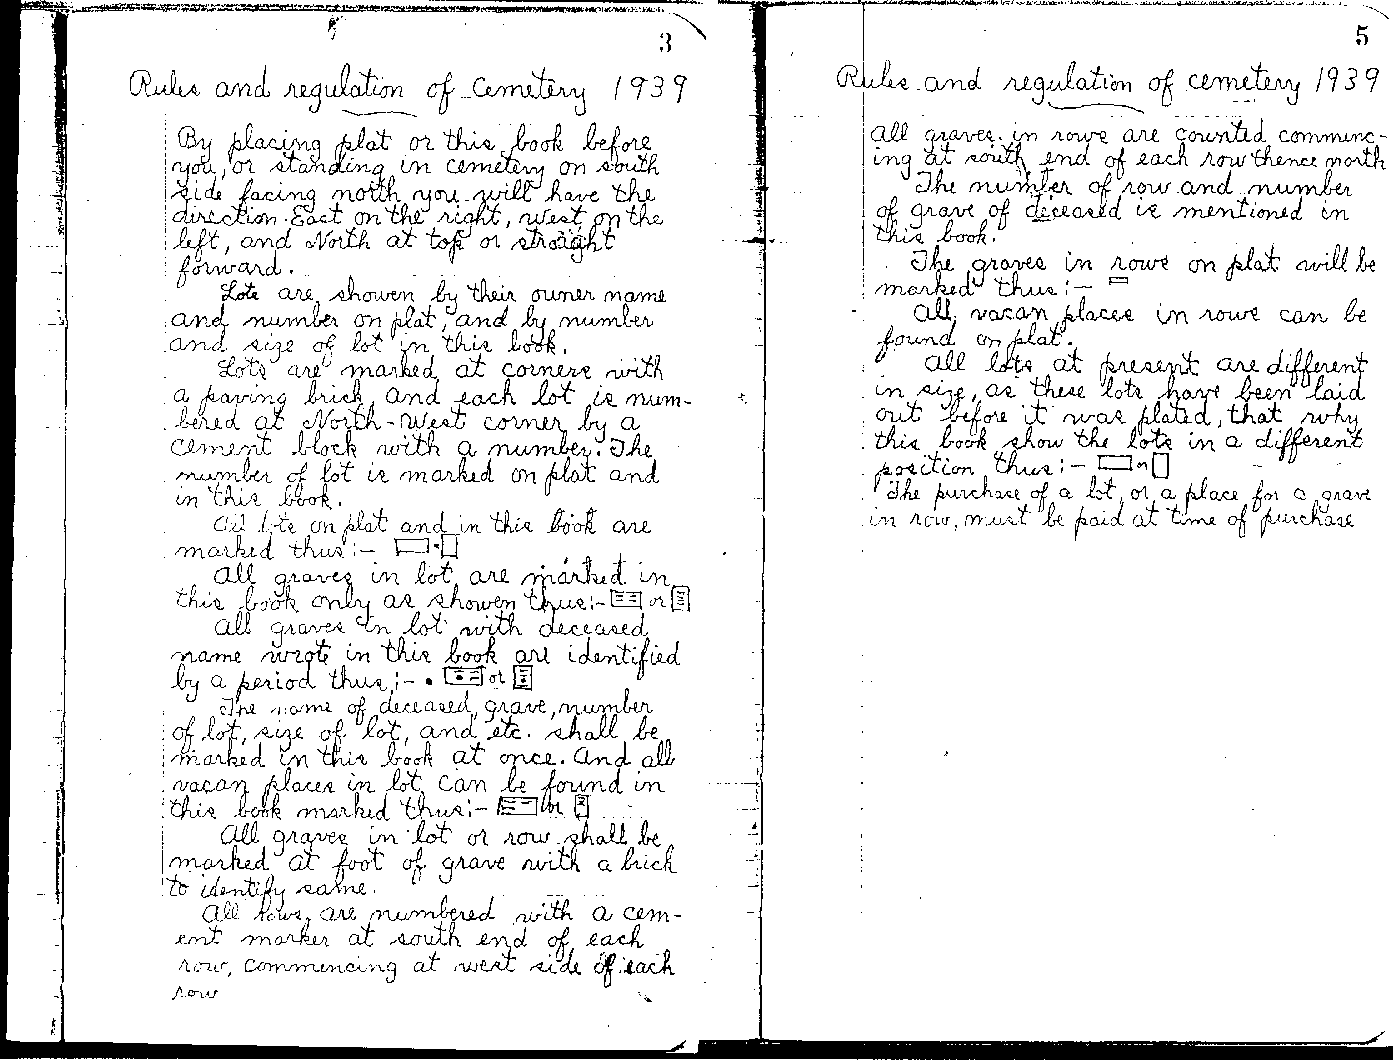 3
Rules and regulation of cemetery 1939
By placing plat or this book before
you, or standing in cemetery on south
side facing north you will have the
direction East on the right, West on the
left, and North at top or straight
forward.
Lots are showen by their owner name
and number on plat, and by number
and size of lot in this book.
Lots are marked at corners with
a paving brick, and each lot is num-
bered at North-West corner by a
cement block with a number. The
number of lot is marked on plat and
in this book.
All lots on plat and in this book are
marked thus:-
All graves in lot are marked in
this book only as showen thus:- or
All graves in lot with deceased
name wrote in this book are identified
by a period thus,:- . or
The name of deceased, grave, number
of lot, size of lot, and etc. shall be
marked in this book at once. And all
vacan places in lot can be found in
this book marked thus:- or
All graves in lot or row shall be
marked at foot of grave with a brick
to identify same.
All rows, are numbered with a cem-
ent marker at south end of each
row, commencing at west side of each
row
5
Rules and regulation of cemetery 1939
All graves in rows are counted commenc-
ing at south end of each row thence north
The number of row and number
of grave of deceased is mentioned in
this book.
The graves in rows on plat will be
marked thus:-
All vacan places in rows can be
found on plat.
All lots at present are different
in size, as these lots have been laid
out before it was plated, that why
this book show the lots in a different
position thus:- or
The purchase of a lot, or a place for a grave
in row, must be paid at time of purchase